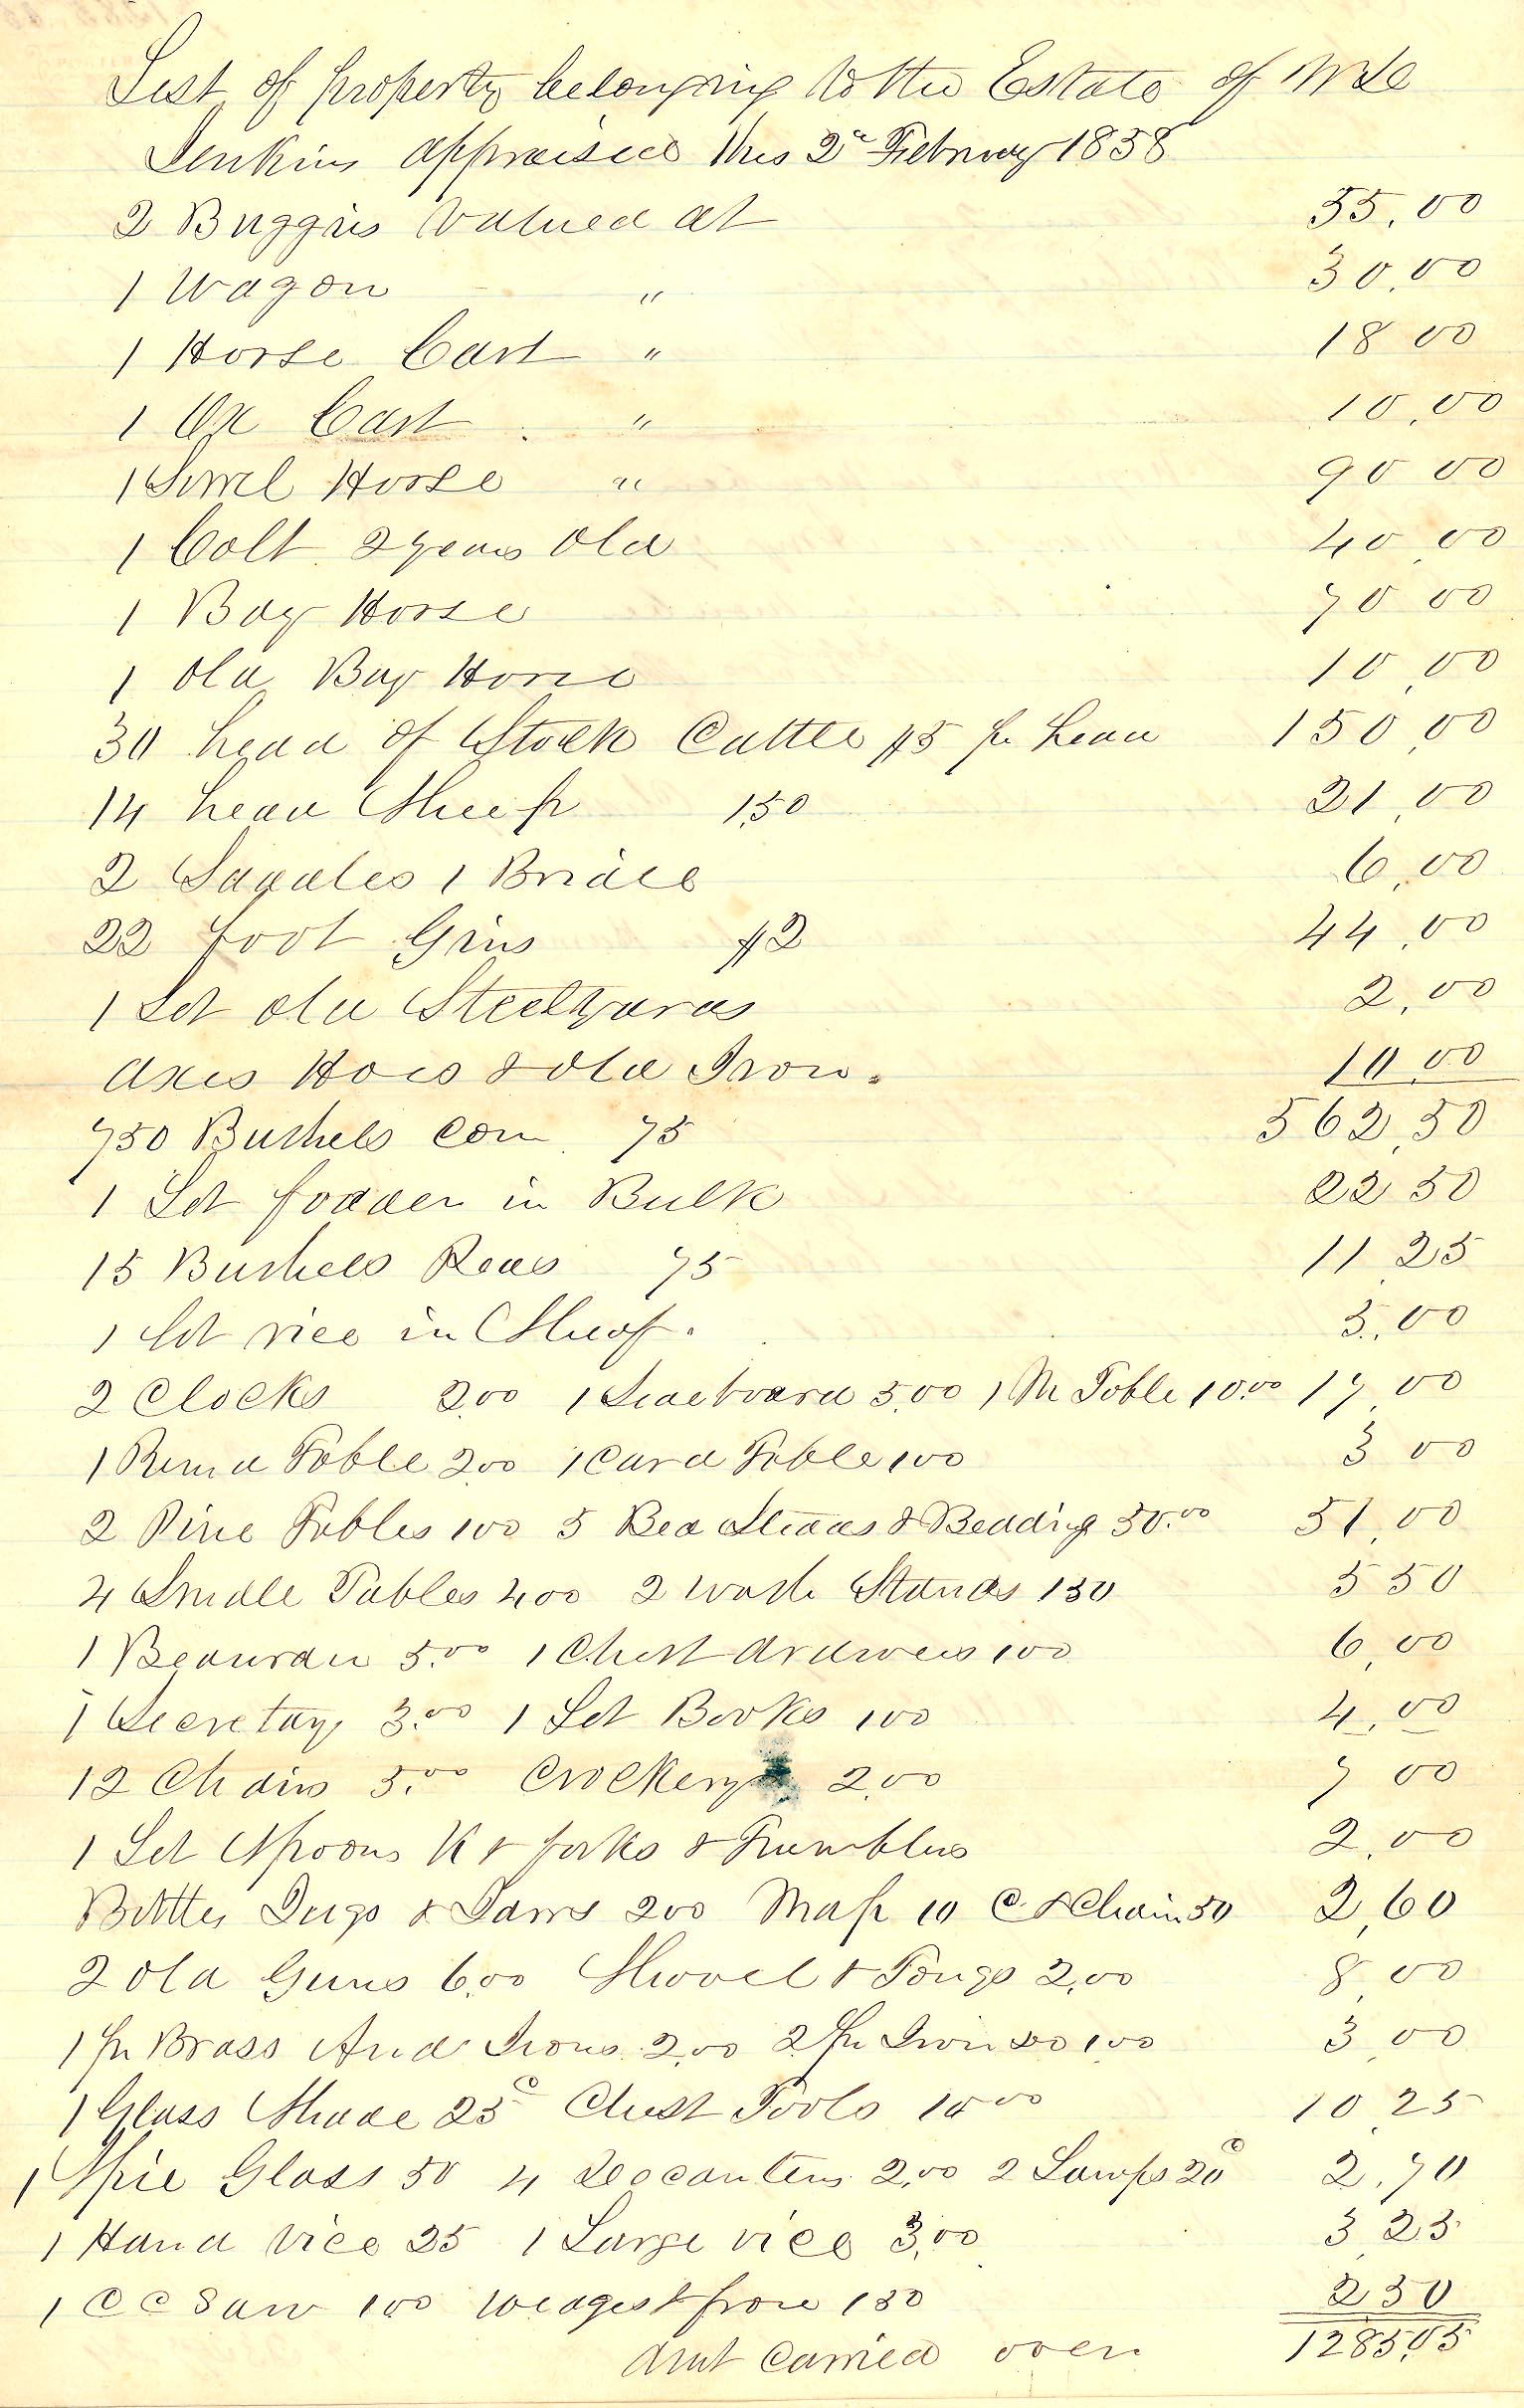 List of property belonging to the Estate of Wm
Jenkins appraised this 2d February 1858
2 Buggies valued at 55.00
1 Wagon " 30.00
1 Horse Cart " 18 00
1 Ox Cart " 10,00
1 Sorrel Horse " 90 00
1 Colt 2 years old 40,00
1 Bay Horse 70 00
1 old Bay Horse 10,00
30 head of Stock Cattle $5 pr head 150,00
14 head Sheep 1,50 21,00
2 Saddles 1 Bridle 6,00
22 foot Gins $2 44,00
1 Set old Steelyards 2,00
axes Hoes & old Iron. 10 00
750 Bushels corn 75 562,50
1 Lot fodder in Bulk 22 50
15 Bushels Peas 75 11,25
1 lot rice in Sheaf. 5,00
2 Clocks 2,00 1 Sideboard 5,00 1 M Table 10.00 17,00
1 Round Table 2,00 1 Card Table 100 3 00
2 Pine Tables 100 5 Bed Steads & Bedding 50.00 51,00
4 Small Tables 4,00 2 wash Stands 150 5 50
1 Beaurau 5.00 1 Chest drawers 100 6,00
1 Secretary 3.00 1 Lot Books 100 4,00
12 Chairs 5.00 Crockery 2,00 7 00
1 Set Spoons K & forks & Tumblers 2,00
Bottles Jugs & Jarrs 200 Map 10 C & Chain 50 2,60
2 old Guns 6,00 Shovel & Tongs 2,00 8,00
1 pr Brass And Irons 2,00 2 pr Iron do 100 3,00
1 Glass Shade 25c Chest Tools 10 00 10,25
1 Spie Glass 50 4 Deocanters 2,00 2 Lamps 20c 2,70
1 Hand vice 25 1 Large vice 3,00 3,25
1 C C Saw 100 wedges & frow 150 2 50
Amt carried over 1285,05